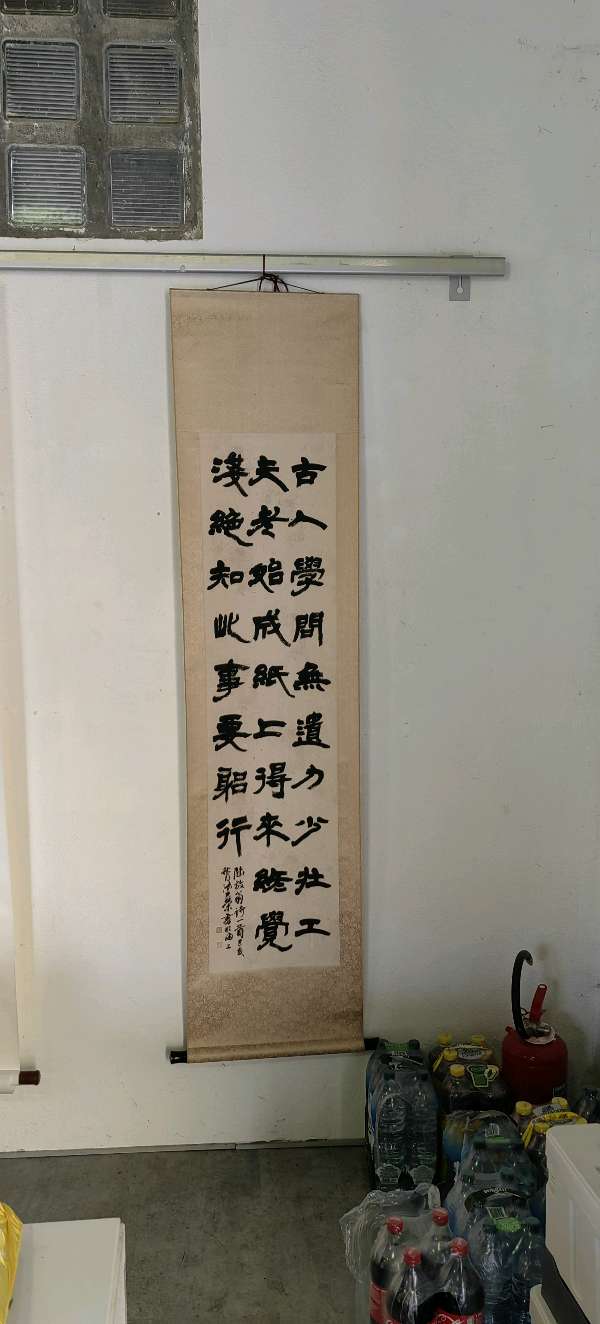 古人學問無遺力少壯工
夫老始成紙上得來終覺
淺絕知此事要躳行
陸放翁詩一首
書於海上